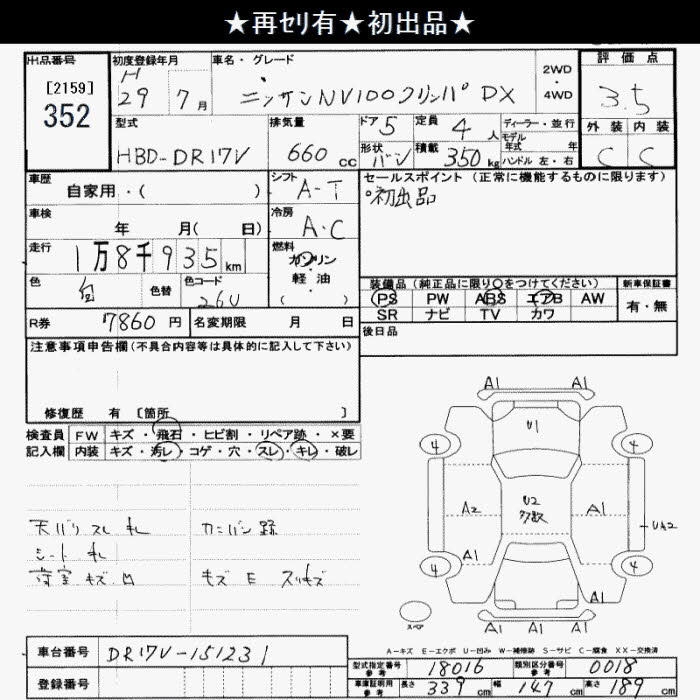 ★再セリ有★初出品★
出品番号 初度登録年月 車名・グレード 2WD・4WD 評価点
[2159]
352
H 29 7月 ニッサンNV100クリッパ DX 3.5
型式 排気量 ドア 5 定員 4人 ディーラー・並行 外装 内装
モデル年式 年
HBD-DR17V 660cc 形状 バン 積載 350kg ハンドル 左・右 C C
車歴 自家用・( ) シフト A-T セールスポイント (正常に機能するものに限ります)
初出品
車検 年 月( 日) 冷房 A・C
走行 1万8千935km 燃料 ガソリン 軽油 ( )
色 白 色替 色コード 26U
装備品 (純正品に限り○をつけてください) 新車保証書
PS PW ABS エアB AW 有・無
SR ナビ TV カワ
R券 7860円 名変期限 月 日 後日品
注意事項申告欄(不具合内容等は具体的に記入して下さい)
修復歴 有 [箇所 ]
検査員 FW キズ・飛石・ヒビ割・リペア跡・×要
記入欄 内装 キズ・汚レ・コゲ・穴・スレ・キレ・破レ
天バリ スレ キレ カンバン跡
シート キレ
荷室 キズ キズ E スリキズ
A1 A1
U1
4 4
A2 U2 多数 A1 UA2
A1
4 4
A1
A1 A1 A1
スペア
A-キズ E-エクボ U-凹み W-補修跡 S-サビ C-腐食 XX-交換済
車台番号 DR17V-151231
型式指定番号 参考 18016 類別区分番号 参考 0018
登録番号
車庫証明用 参考 長さ 339cm 幅 147cm 高さ 189cm